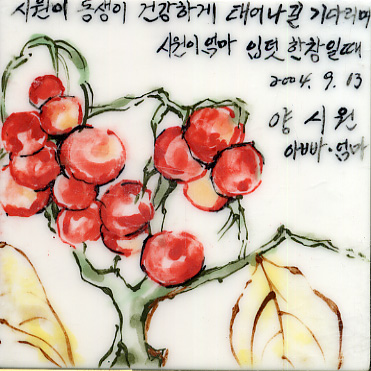 시원이 동생이 건강하게 태어나길 기다리며
시원이 엄마 입덧 한창일때
2004. 9. 13
양 시 원
아빠·엄마